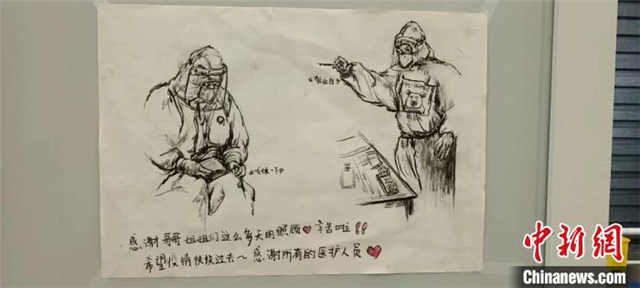 感谢哥哥姐姐们这么多天的照顾 辛苦啦!!
希望疫情快快过去~ 感谢所有的医护人员
中新网
Chinanews.com